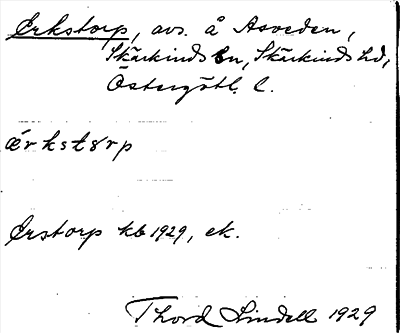 Erkstorp, avs. å Asveden,
Skärkinds sn, Skärkinds hd,
Östergötl. l.
ǽrkstɔrp
Erstorp kb 1929, ek.
Thord Lindell 1929